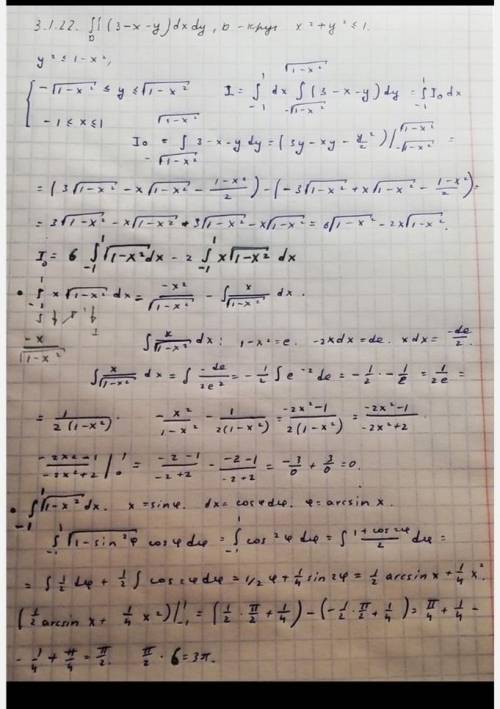 3.1.22. ∬_D (3-x-y)dxdy, D - круг x²+y²≤1.
y²≤1-x²,
{ -√(1-x²) ≤ y ≤ √(1-x²)   I = ∫_{-1}^{1} dx ∫_{-√(1-x²)}^{√(1-x²)} (3-x-y)dy = ∫_{-1}^{1} I₀ dx
-1≤x≤1
I₀ = ∫_{-√(1-x²)}^{√(1-x²)} 3-x-y dy = (3y-xy-y²/2)|_{-√(1-x²)}^{√(1-x²)} =
= (3√(1-x²) - x√(1-x²) - (1-x²)/2) - (-3√(1-x²) + x√(1-x²) - (1-x²)/2) =
= 3√(1-x²) - x√(1-x²) + 3√(1-x²) - x√(1-x²) = 6√(1-x²) - 2x√(1-x²).
I₀ = 6 ∫_{-1}^{1} √(1-x²) dx - 2 ∫_{-1}^{1} x√(1-x²) dx
• ∫_{-1}^{1} x√(1-x²) dx = -x²/√(1-x²) - ∫ x/√(1-x²) dx.
-x/√(1-x²)   ∫ x/√(1-x²) dx: 1-x²=e. -2xdx=de. xdx = -de/2.
∫ x/√(1-x²) dx = ∫ -de/2e² = -1/2 ∫ e⁻² de = -1/2 · -1/e = 1/2e =
= 1/2(1-x²).   -x²/(1-x²) - 1/2(1-x²) = (-2x²-1)/2(1-x²) = (-2x²-1)/(-2x²+2).
(-2x²-1)/(-2x²+2) |¹₀ = (-2-1)/(-2+2) - (-2-1)/(-2+2) = -3/0 + 3/0 = 0.
• ∫_{-1}^{1} √(1-x²) dx. x=sinφ. dx=cosφdφ. φ=arcsin x.
∫_{-1}^{1} √(1-sin²φ) cosφdφ = ∫_{-1}^{1} cos²φdφ = ∫ (1+cos2φ)/2 dφ =
= ∫ 1/2 dφ + 1/2 ∫ cos2φdφ = 1/2 φ + 1/4 sin2φ = 1/2 arcsin x + 1/4 x².
(1/2 arcsin x + 1/4 x²)|¹₋₁ = (1/2 · π/2 + 1/4) - (-1/2 · π/2 + 1/4) = π/4 + 1/4 -
- 1/4 + π/4 = π/2.   π/2 · 6 = 3π.